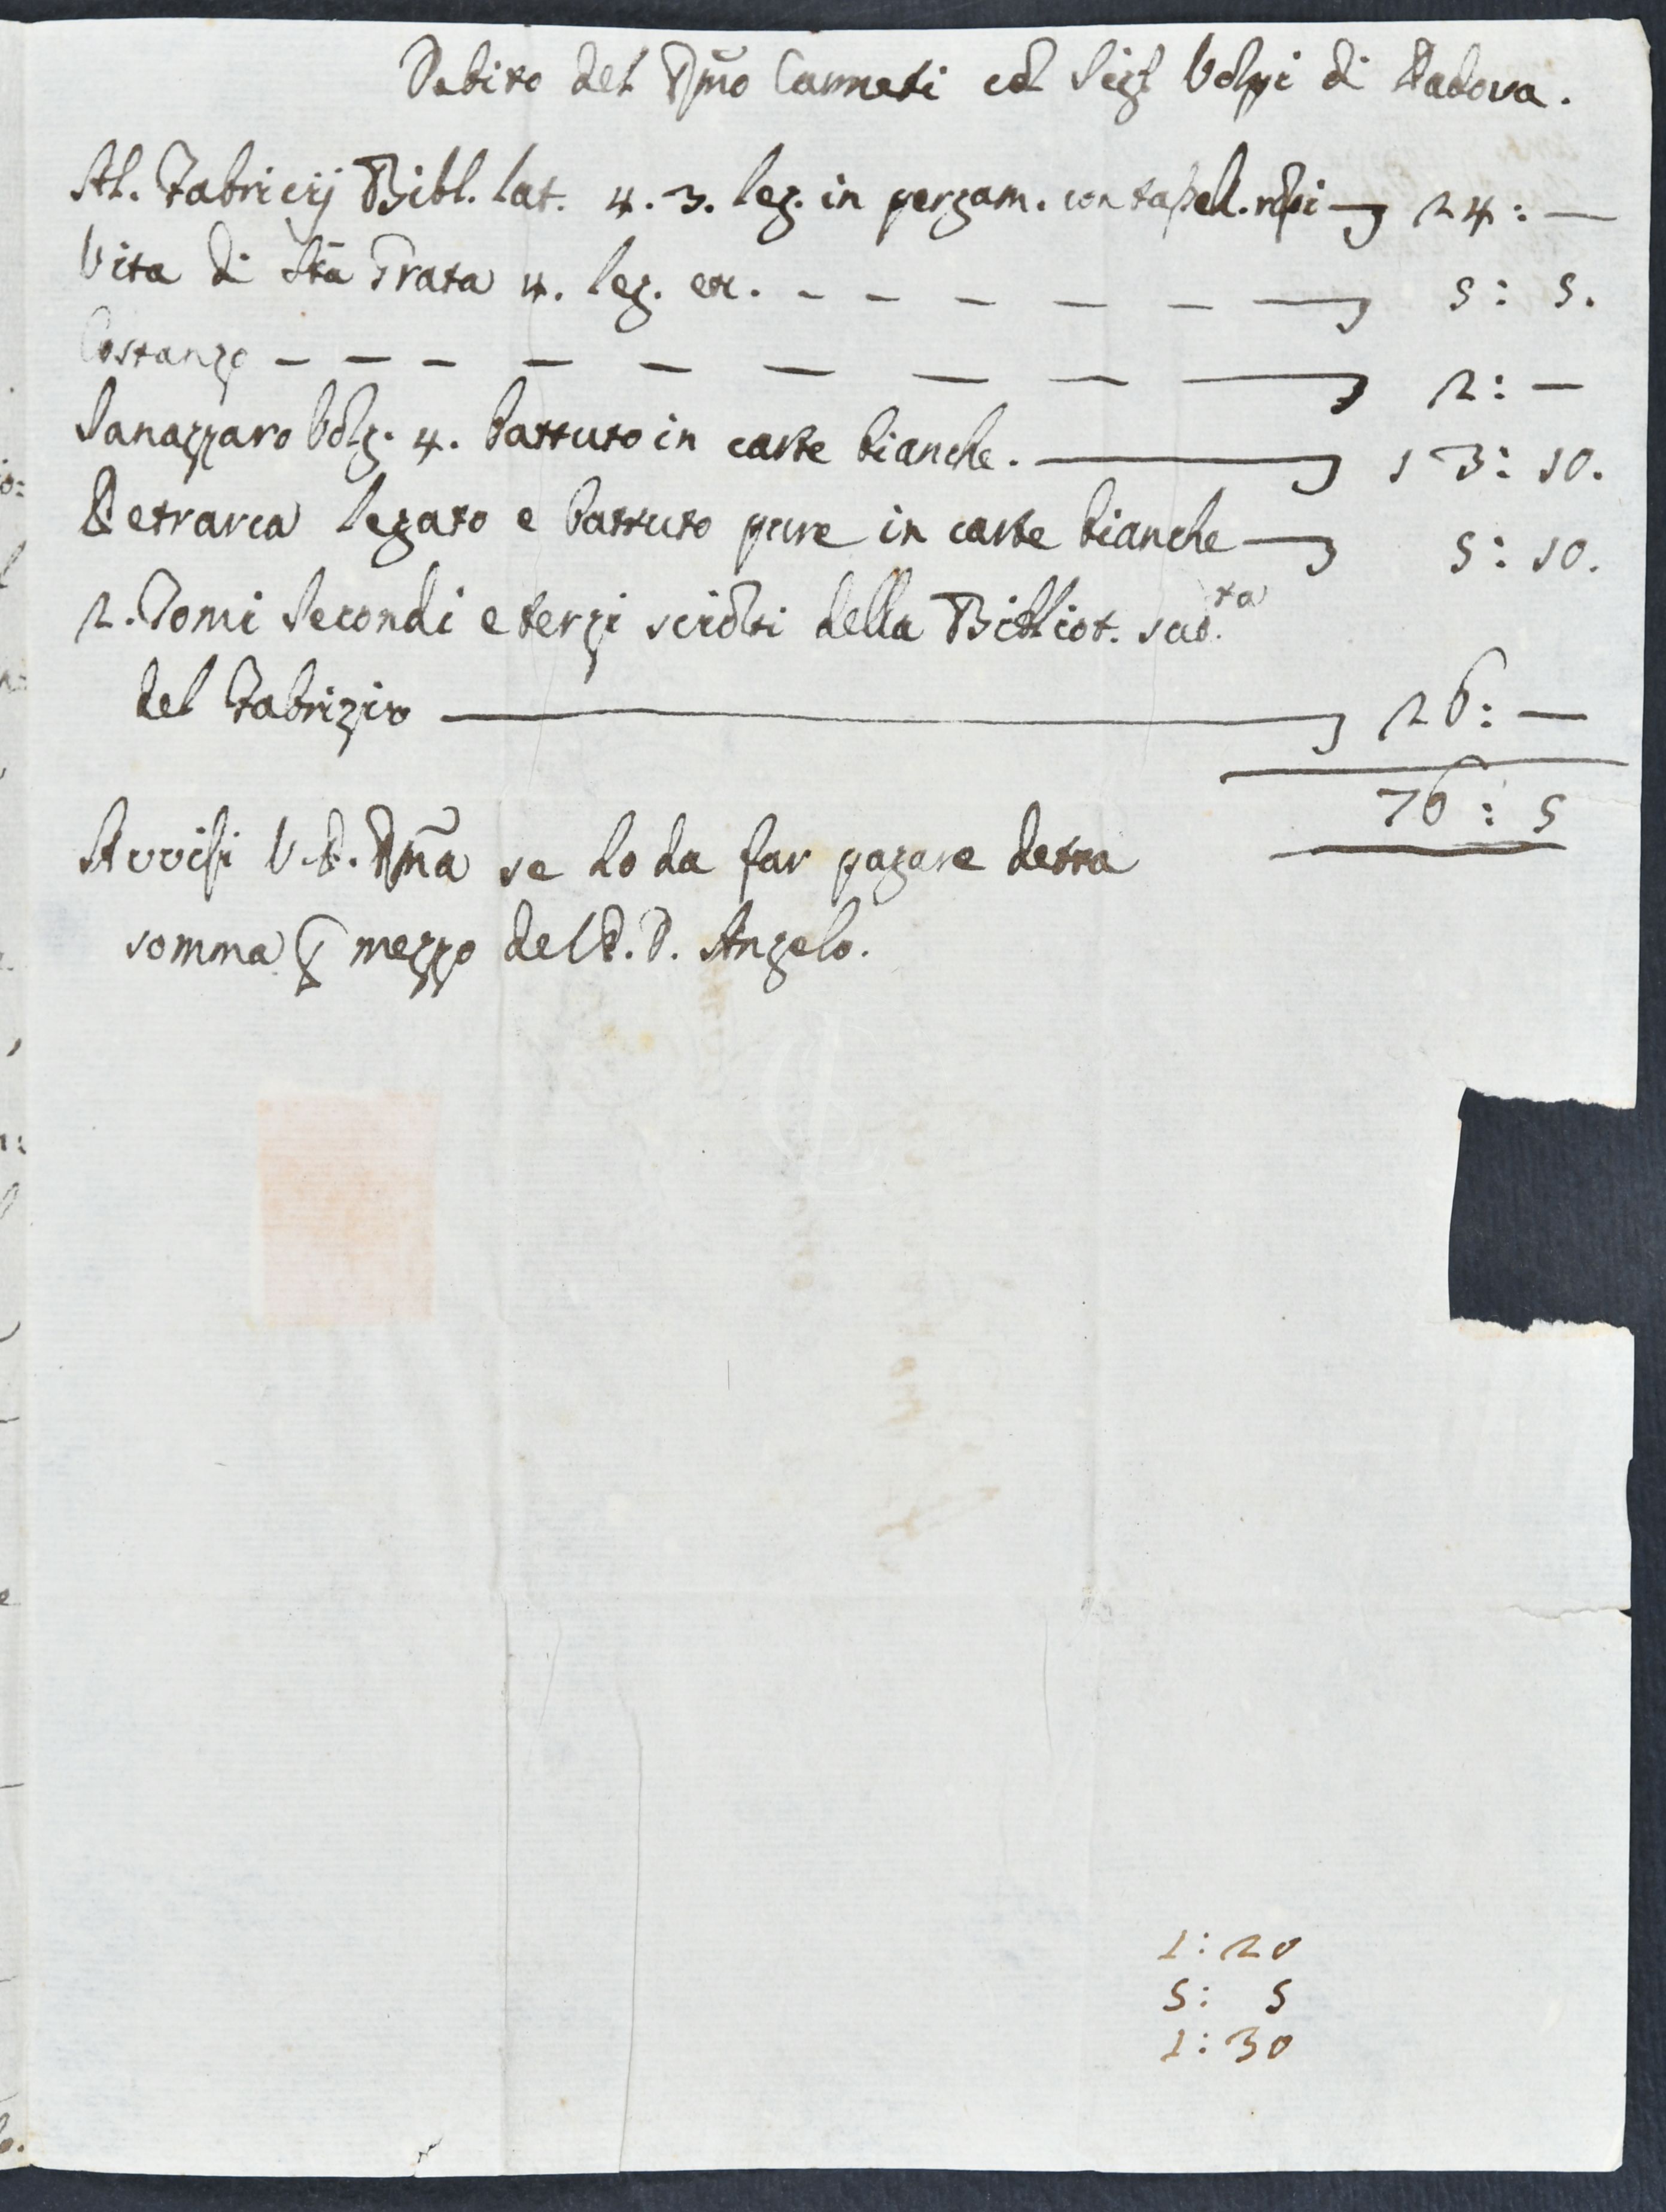 Debito del Rmo Canneti col Sigr Volpi di Padova.
Al. Fabricij Bibl. lat. 4. 3. leg. in pergam. con tassell. rossi — 24: —
Vita di Sta Grata 4. leg. etc. - - - - - — 5: 5.
Costanzo - - - - - - - - — 2: —
Sanazzaro Volg. 4. battuto in carte bianche. — 13: 10.
Petrarca legato e battuto pure in carte bianche — 5: 10.
2. Tomi Secondi e terzi sciolti della Bibliot. sud.ta
del Fabrizio — 26: —
76: 5
Avvisi V. P. Rma se ho da far pagare detta
somma p mezzo del P. D. Angelo.
1: 20
5: 5
1: 30